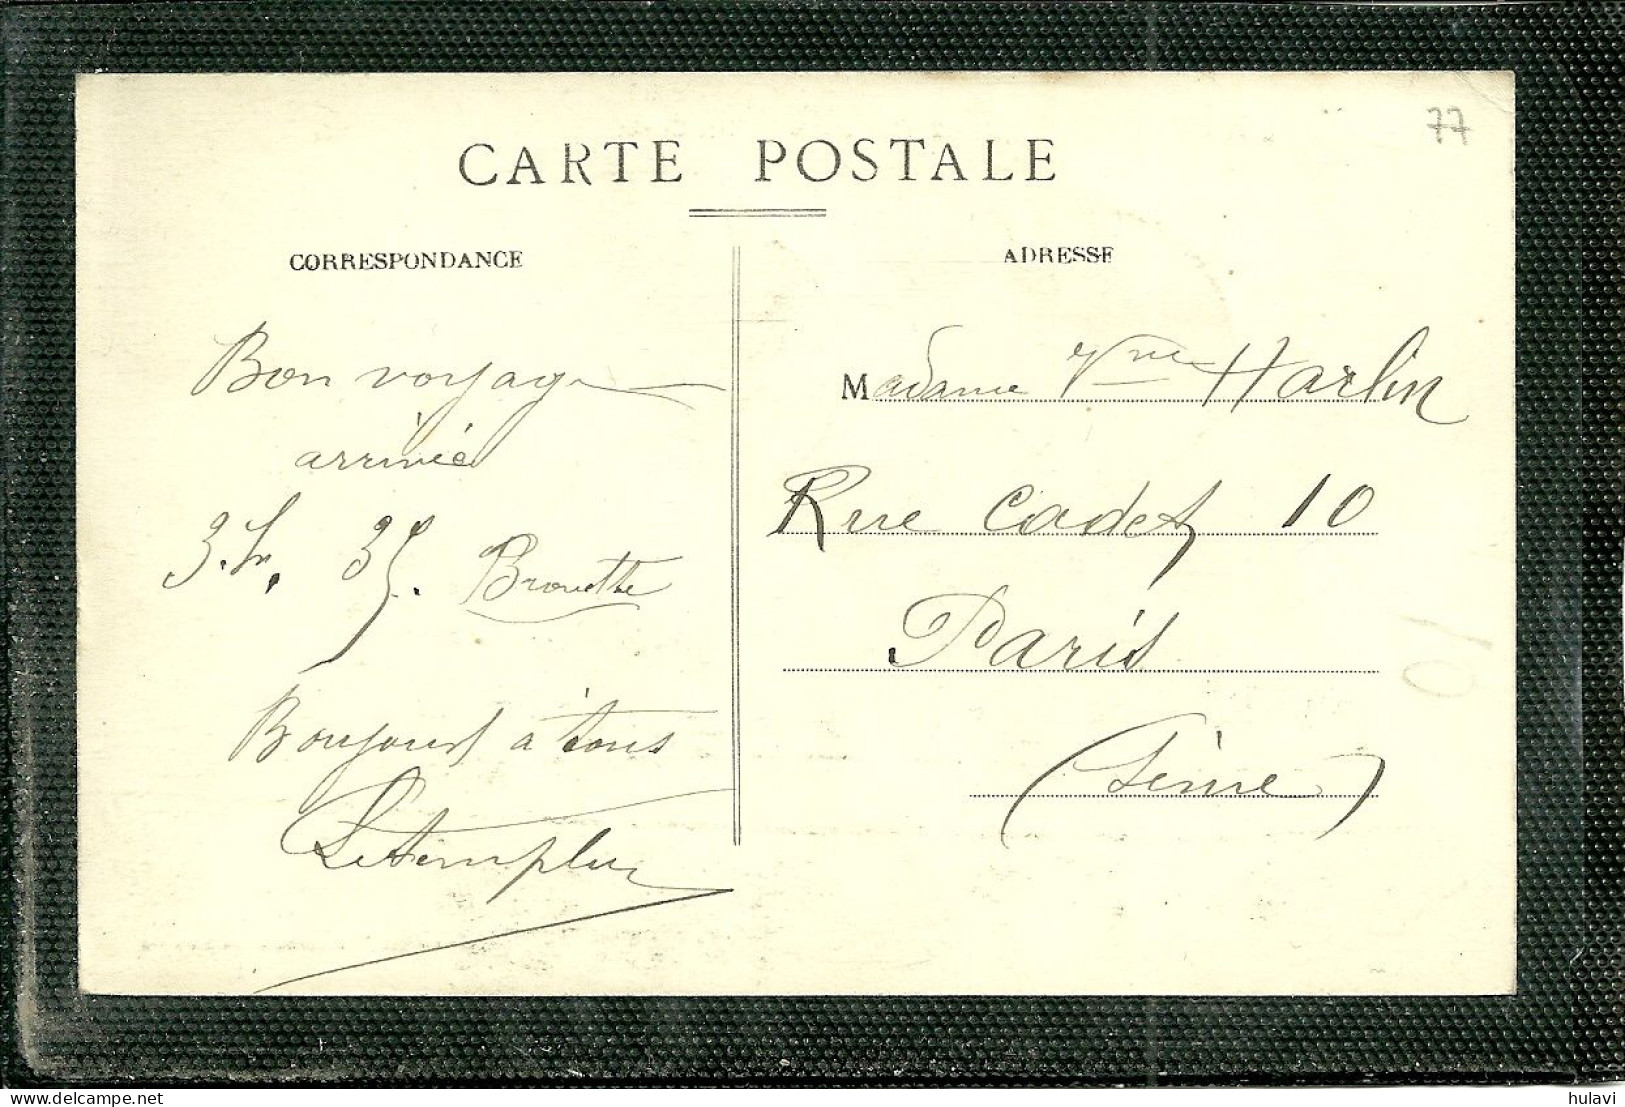 77
CARTE POSTALE
CORRESPONDANCE
ADRESSE
Bon voyage
arrivée
3.h. 35. Brouette
Bonjour à tous
Letemplier
Madame Vve Harlin
Rue Cadet 10
Paris
(Seine)
10
hulavi